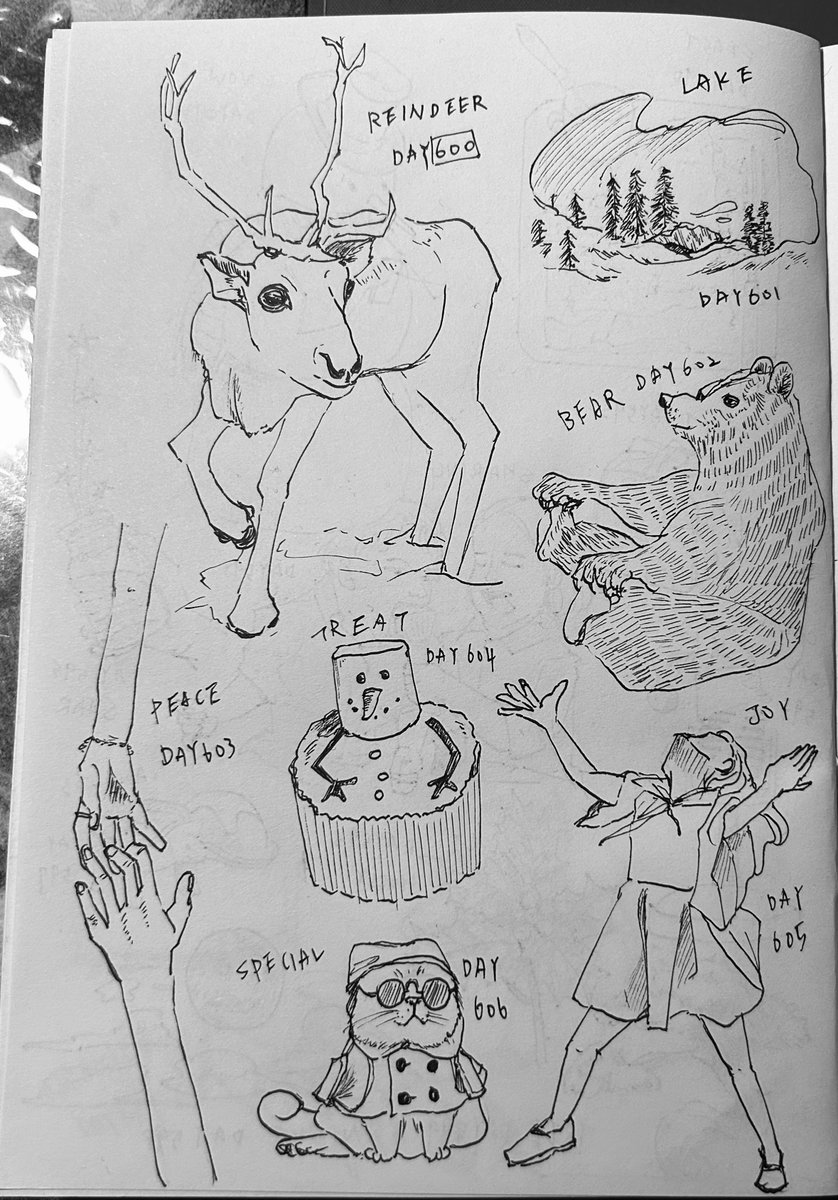 REINDEER
DAY 600
LAKE
DAY 601
BEAR DAY 602
PEACE
DAY 603
TREAT
DAY 604
JOY
DAY
605
SPECIAL
DAY
606